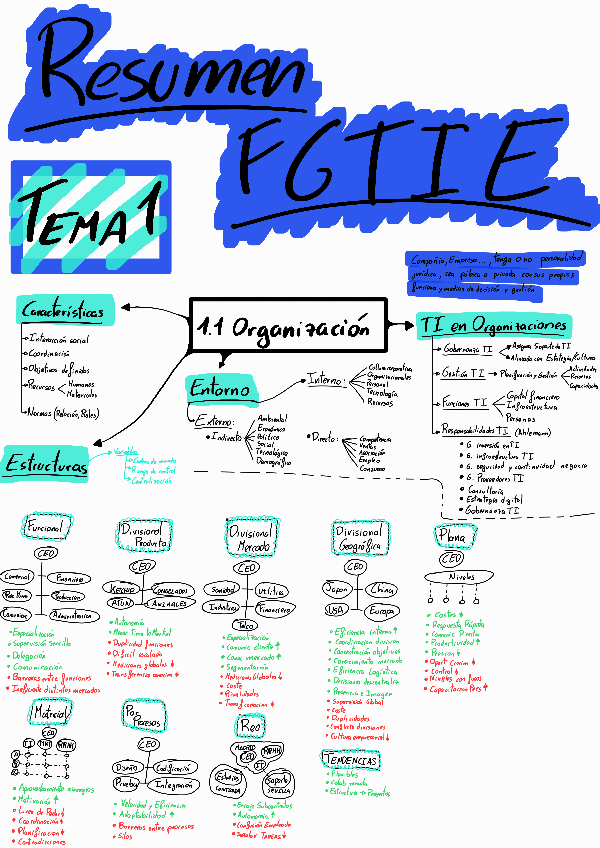 Resumen
FGTIE
TEMA 1
Compañía, Empresa..., tenga o no personalidad
jurídica, sea pública o privada con sus propias
funciones y medios de decisión y gestión
1.1 Organización
Características
Interacción social
Coordinación
Objetivos definidos
Recursos
Humanos
Materiales
Normas (Relación, Roles)
Entorno
Interno:
Cultura corporativa
Organizacionales
Personal
Tecnología
Recursos
Externo:
Indirecto
Ambiental
Económico
Político
Social
Tecnológico
Demográfico
Directo:
Competencia
Asociación
Empleo
Consumo
TI en Organizaciones
Gobernanza TI
Asegura Soporte de TI
Alineada con Estrategia/Cultura
Gestión TI
Planificación y Gestión
Actividades
Recursos
Capacidades
Funciones TI
Capital financiero
Infraestructura
Personas
Responsabilidades TI
G. inversión en TI
G. infraestructura TI
G. seguridad y continuidad negocio
G. Proveedores TI
Consultoría
Estrategia digital
Gobernanza TI
Estructuras
Variables
Cadena de mando
Rango de control
Centralización
Funcional
CEO
Comercial
Financiero
Producción
Administración
Especialización
Supervisión Sencilla
Delegación
Comunicación
Barreras entre funciones
Ineficiente distintos mercados
Divisional
Producto
CEO
KETCHUP
CONGELADOS
ATÚN
ANIMALES
Autonomía
Menor Time to Market
Duplicidad funciones
Difícil escalado
Decisiones globales ↓
Transferencia conocim ↓
Divisional
Mercado
CEO
Sanidad
Utilities
Industria
Financiero
Telco
Especialización
Comunic cliente ↑
Conoc mercado ↑
Segmentación
Decisiones Globales ↓
Coste
Prioridades
Transf conocim ↓
Divisional
Geográfica
CEO
Japón
China
USA
Europa
Eficiencia interna ↑
Coordinación división
Consecución objetivos
Conocimiento mercado
Eficiencia Logística
Decisiones descentraliz
Presencia e Imagen
Supervisión Global
Coste
Duplicidades
Conflicto divisiones
Cultura empresarial ↓
Plana
CEO
Niveles
Costes ↓
Respuesta Rápida
Comunic Directa
Productividad ↑
Presión ↑
Control ↓
Capacitación Pers ↑
Matricial
CEO
TI
MKT
RRHH
Aprovechamiento sinergias
Motivación ↑
Lucha de Poder ↑
Coordinación ↓
Planificación ↓
Contradicciones
Por
Procesos
CEO
Diseño
Codificación
Prueba
Integración
Velocidad y Eficiencia
Adaptabilidad ↑
Barreras entre procesos
Silos
Red
MADRID
CEO
RRHH
TI
Soporte
SEVILLA
Autonomía ↑
TENDENCIAS
Flexibles
Colab remota
Estructura → Proyectos